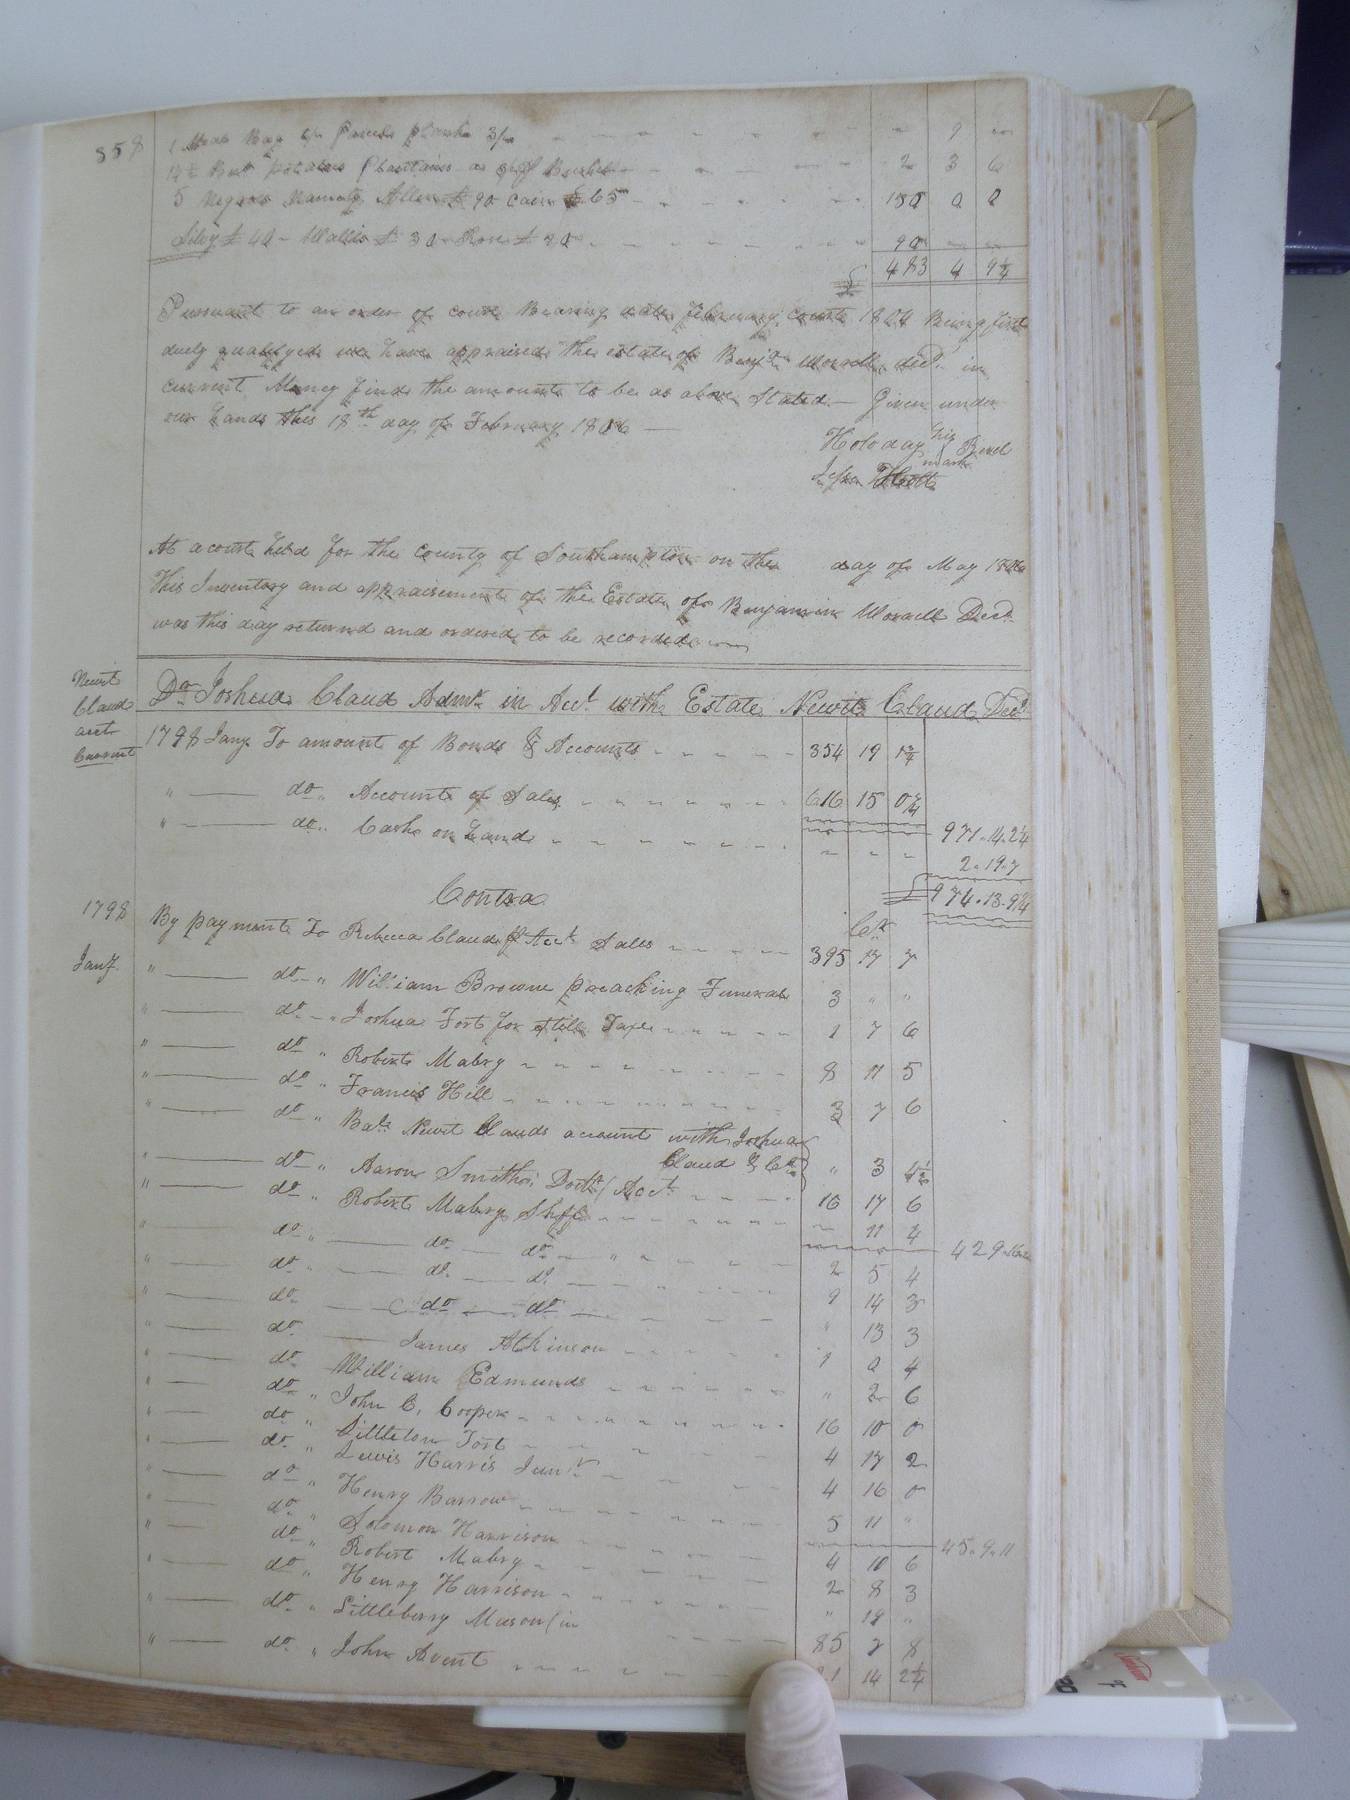 858
1 Meal Bag 6/ Parcel plank 3/ 9
14½ Bus. potatoes Plantains a Bushel 2 3 6
5 Negroes Namely, Allen £ 90 Cain £ 65 150 0 0
Silvy £ 40 - Wallis £ 30 Rose £ 20 90
£ 483 4 9¼
Pursuant to an order of court Bearing date February Court Being first
duely qualifyed we have appraised the estate of Benja. Worrell decd. in
current Money find the amount to be as above Stated — Given under
our hands this 18th day of February 1806 —
Holoday his Revel
mark
Jesse
At a court held for the County of Southampton on the day of May
This Inventory and appraisement of the Estate of Benjamin Worrell Decd.
was this day returnd and ordered to be recorded
Newit
Claud
act
Current
Dr. Joshua Claud Admr. in Acct. with Estate Newit Claud Decd.
1798 Jany. To amount of Bonds & Accounts 354 19 1¾
" do. " Accounts of Sales 616 15 0¾
971.14.2¼
" do. " Cash on hand
2.19.7
£ 974.13.9¼
Contra
Cr.
1798 By payment To Rebecca Claud pr Acct. Sales 395 17 7
Jany. " do. " William Browne preaching Funeral 3 " "
" do. " Joshua Fort for still Taxe 1 7 6
" do. " Robert Mabry 8 11 5
" do. " Francis Hill 3 7 6
" do. " Bale. Newit Clauds account with Joshua
Claud & Co. " 3 4½
" do. " Aaron Smith, Doctr. Acct. 16 17 6
" do. " Robert Mabry Shff 11 4
429
" do. " do. do. " 2 5 4
" do. do. do. 9 14 3
" do. do. do. " 13 3
" do. James Atkinson 1 0 4
" do. William Edmunds " 2 6
" do. " John C. Cooper 16 10 0
" do. " Littleton Fort 4 17 2
" do. " Lewis Harris Junr. 4 16 0
" do. " Henry Barrow 5 11 "
45.9.11
" do. " Solomon Harrison 4 10 6
" do. " Robert Mabry 2 8 3
" do. " Henry Harrison " 18 "
" do. " Littleberry Mason 85 7 8
" do. " John Avent 21 14 2¼